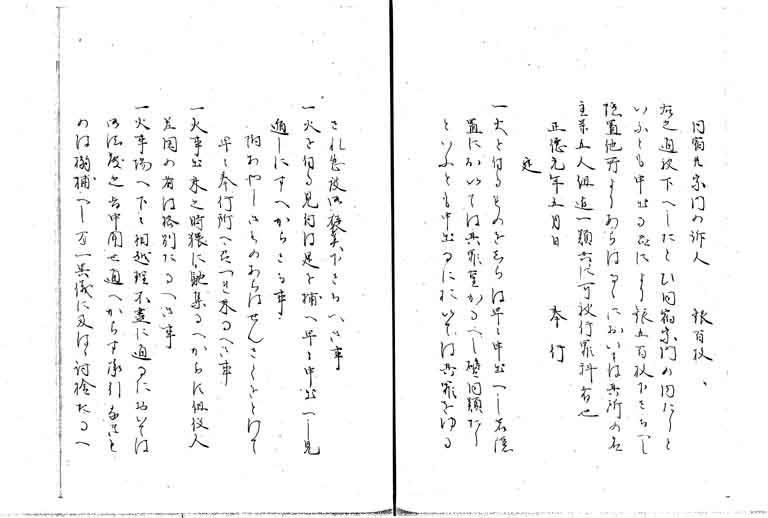 同宿并宗門の訴人　　銀百枚、
右之通被下へしたとひ同宿宗門の内たりと
いふとも申出る品により銀五百枚下さるへし
隠置他所よりあらはるゝにおいては其所の名
主并五人組迄一類共に可被行罪科者也
正徳元年五月日　　奉行
定
一火を付るものをしらは早々申出へし若隠
置にをいては其罪重かるへし縦同類たり
といふとも申出るにおいては其罪をゆる
され急度御褒美下さるへき事
一火を付る見付は是を捕へ早々申出へし見
遁しにすへからさる事
附あやしきものあらはせんさくをとけて
早々奉行所へ召つれ来るへき事
一火事出来之時猥に馳集るへからす但役人
差図の者は格別たるへき事
一火事場へ下々相越理不尽に通るにおいては
御法度之旨申聞せ通へからす承引なきも
のは搦捕へし万一異儀に及はゝ討捨たるへ